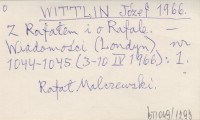 WITTLIN Józef 1966.
Z Rafałem i o Rafale. —
Wiadomości (Londyn), nr
1044-1045 (3-10 IV 1966): 1.
Rafał Malczewski.